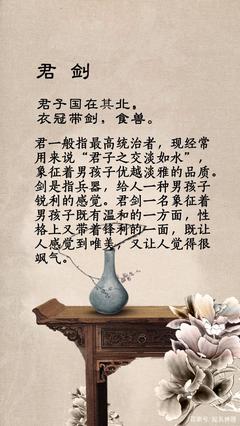 君 剑
君子国在其北，
衣冠带剑，食兽。
君一般指最高统治者，现经常
用来说“君子之交淡如水”，
象征着男孩子优越淡雅的品质。
剑是指兵器，给人一种男孩子
锐利的感觉。君剑一名象征着
男孩子既有温和的一方面，性
格上又带着锋利的一面，既让
人感觉到唯美，又让人觉得很
飒气。